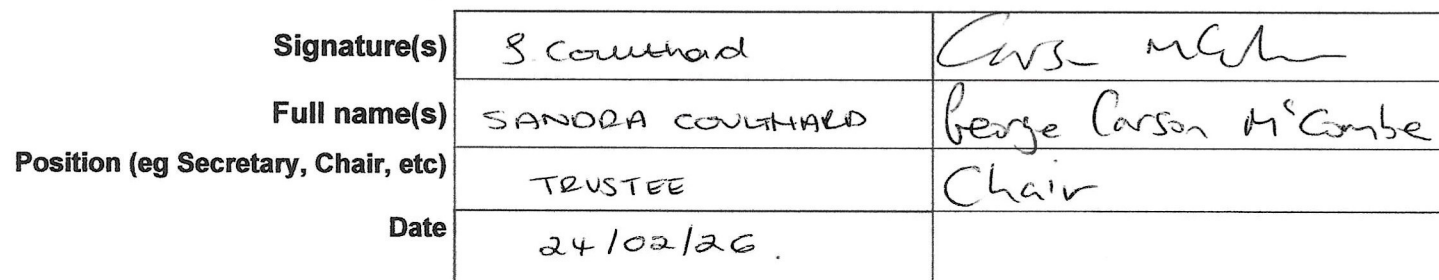 Signature(s) S. Coulthard Carson McCombe
Full name(s) SANDRA COULTHARD George Carson McCombe
Position (eg Secretary, Chair, etc) TRUSTEE Chair
Date 24/02/26.